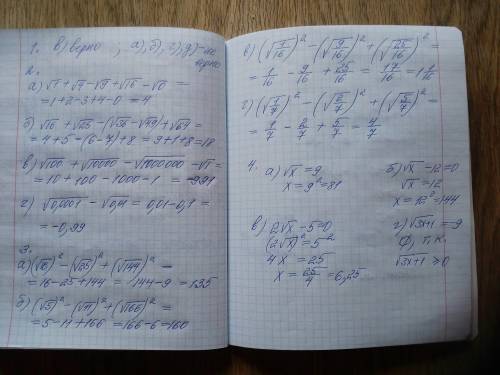 1. в) верно; а), б), г), д) - не
верно
2.
а) √1 + √4 - √9 + √16 - √0 =
= 1 + 2 - 3 + 4 - 0 = 4
б) √16 + √25 - (√36 - √49) + √64 =
= 4 + 5 - (6 - 7) + 8 = 9 + 1 + 8 = 18
в) √100 + √10000 - √1000000 - √1 =
= 10 + 100 - 1000 - 1 = -891
г) √0,0001 - √0,01 = 0,01 - 0,1 =
= -0,99
3.
а) (√16)² - (√25)² + (√144)² =
= 16 - 25 + 144 = 144 - 9 = 135
б) (√5)² - (√11)² + (√166)² =
= 5 - 11 + 166 = 166 - 6 = 160
в) (√1/16)² - (√9/16)² + (√25/16)² =
= 1/16 - 9/16 + 25/16 = 17/16 = 1 1/16
г) (√1/7)² - (√2/7)² + (√5/7)² =
= 1/7 - 2/7 + 5/7 = 4/7
4. а) √x = 9
x = 9² = 81
б) √x - 12 = 0
√x = 12
x = 12² = 144
в) 2√x - 5 = 0
(2√x)² = 5²
4x = 25
x = 25/4 = 6,25
г) √3x+1 = -9
Ø, т.к.
√3x+1 ≥ 0